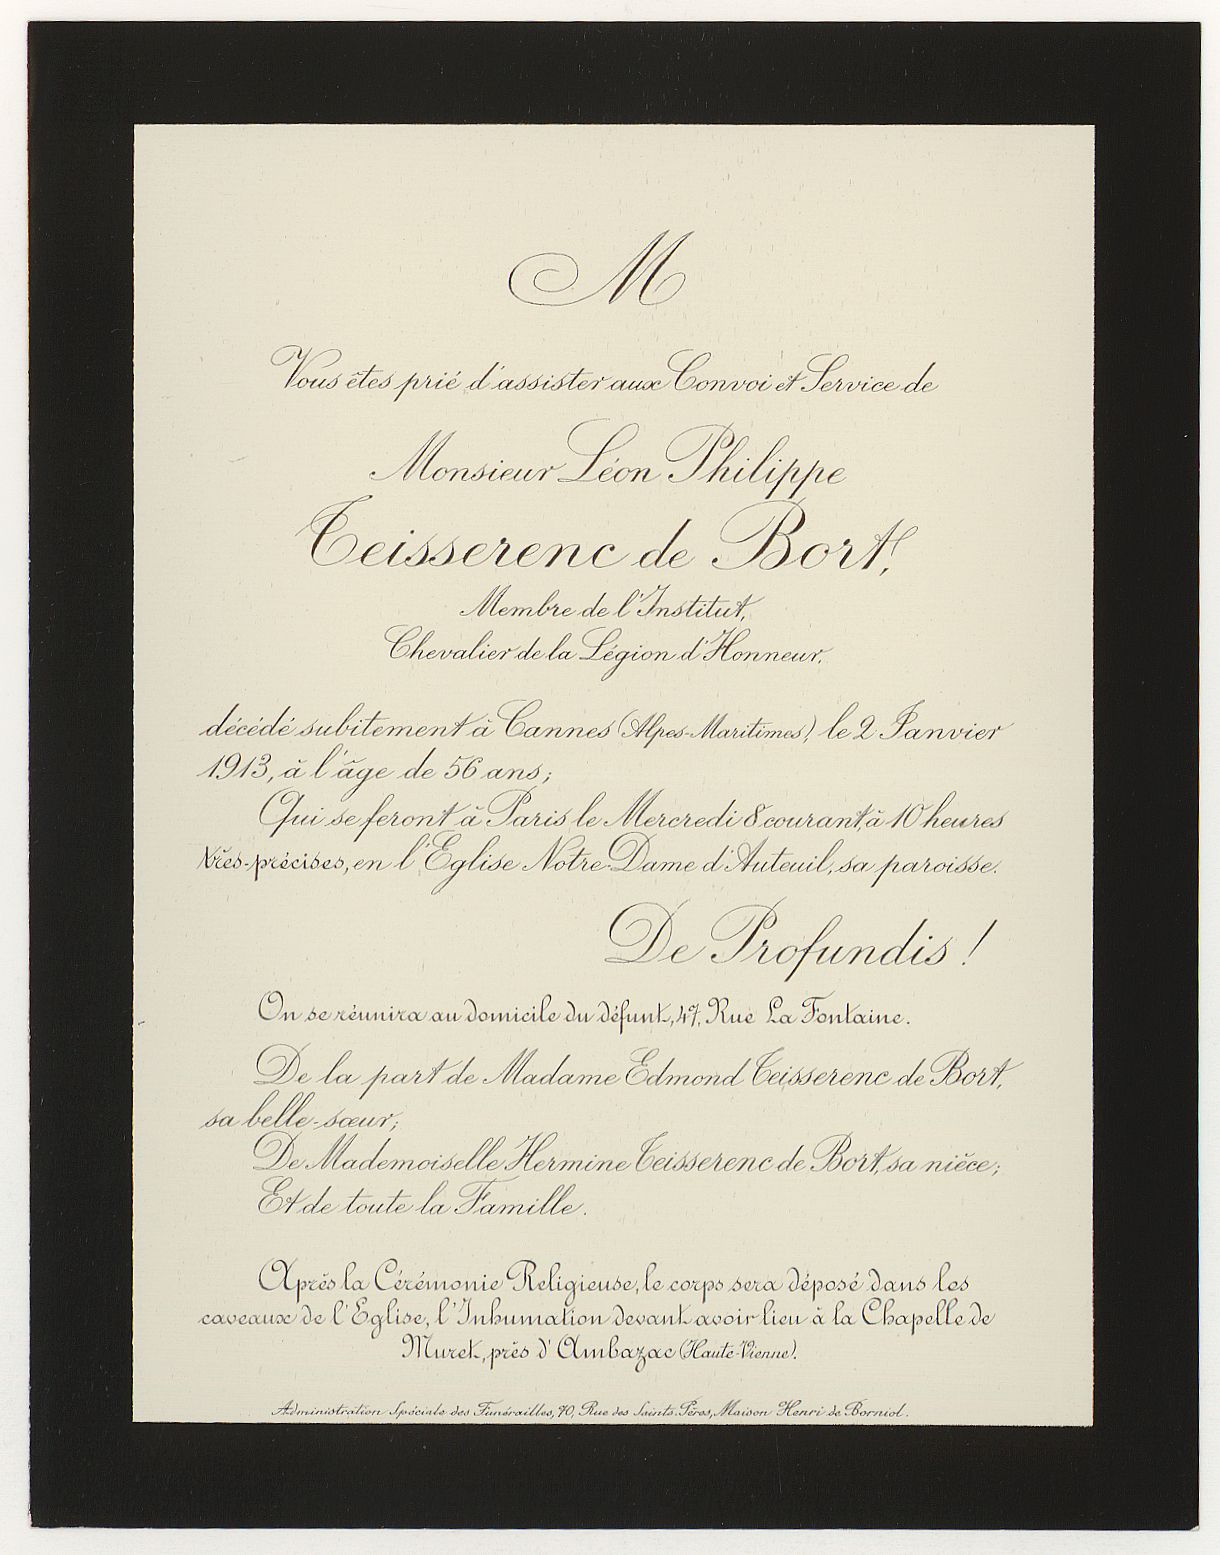 M
Vous êtes prié d'assister aux Convoi et Service de
Monsieur Léon Philippe
Teisserenc de Bort,
Membre de l'Institut,
Chevalier de la Légion d'Honneur,
décédé subitement à Cannes (Alpes-Maritimes), le 2 Janvier
1913, à l'âge de 56 ans;
Qui se feront à Paris le Mercredi 8 courant, à 10 heures
très-précises, en l'Eglise Notre-Dame d'Auteuil, sa paroisse.
De Profundis !
On se réunira au domicile du défunt, 47, Rue La Fontaine.
De la part de Madame Edmond Teisserenc de Bort,
sa belle-sœur;
De Mademoiselle Hermine Teisserenc de Bort, sa nièce;
Et de toute la Famille.
Après la Cérémonie Religieuse, le corps sera déposé dans les
caveaux de l'Eglise, l'Inhumation devant avoir lieu à la Chapelle de
Muret, près d'Ambazac (Haute-Vienne).
Administration Spéciale des Funérailles, 70, Rue des Saints-Pères, Maison Henri de Borniol.